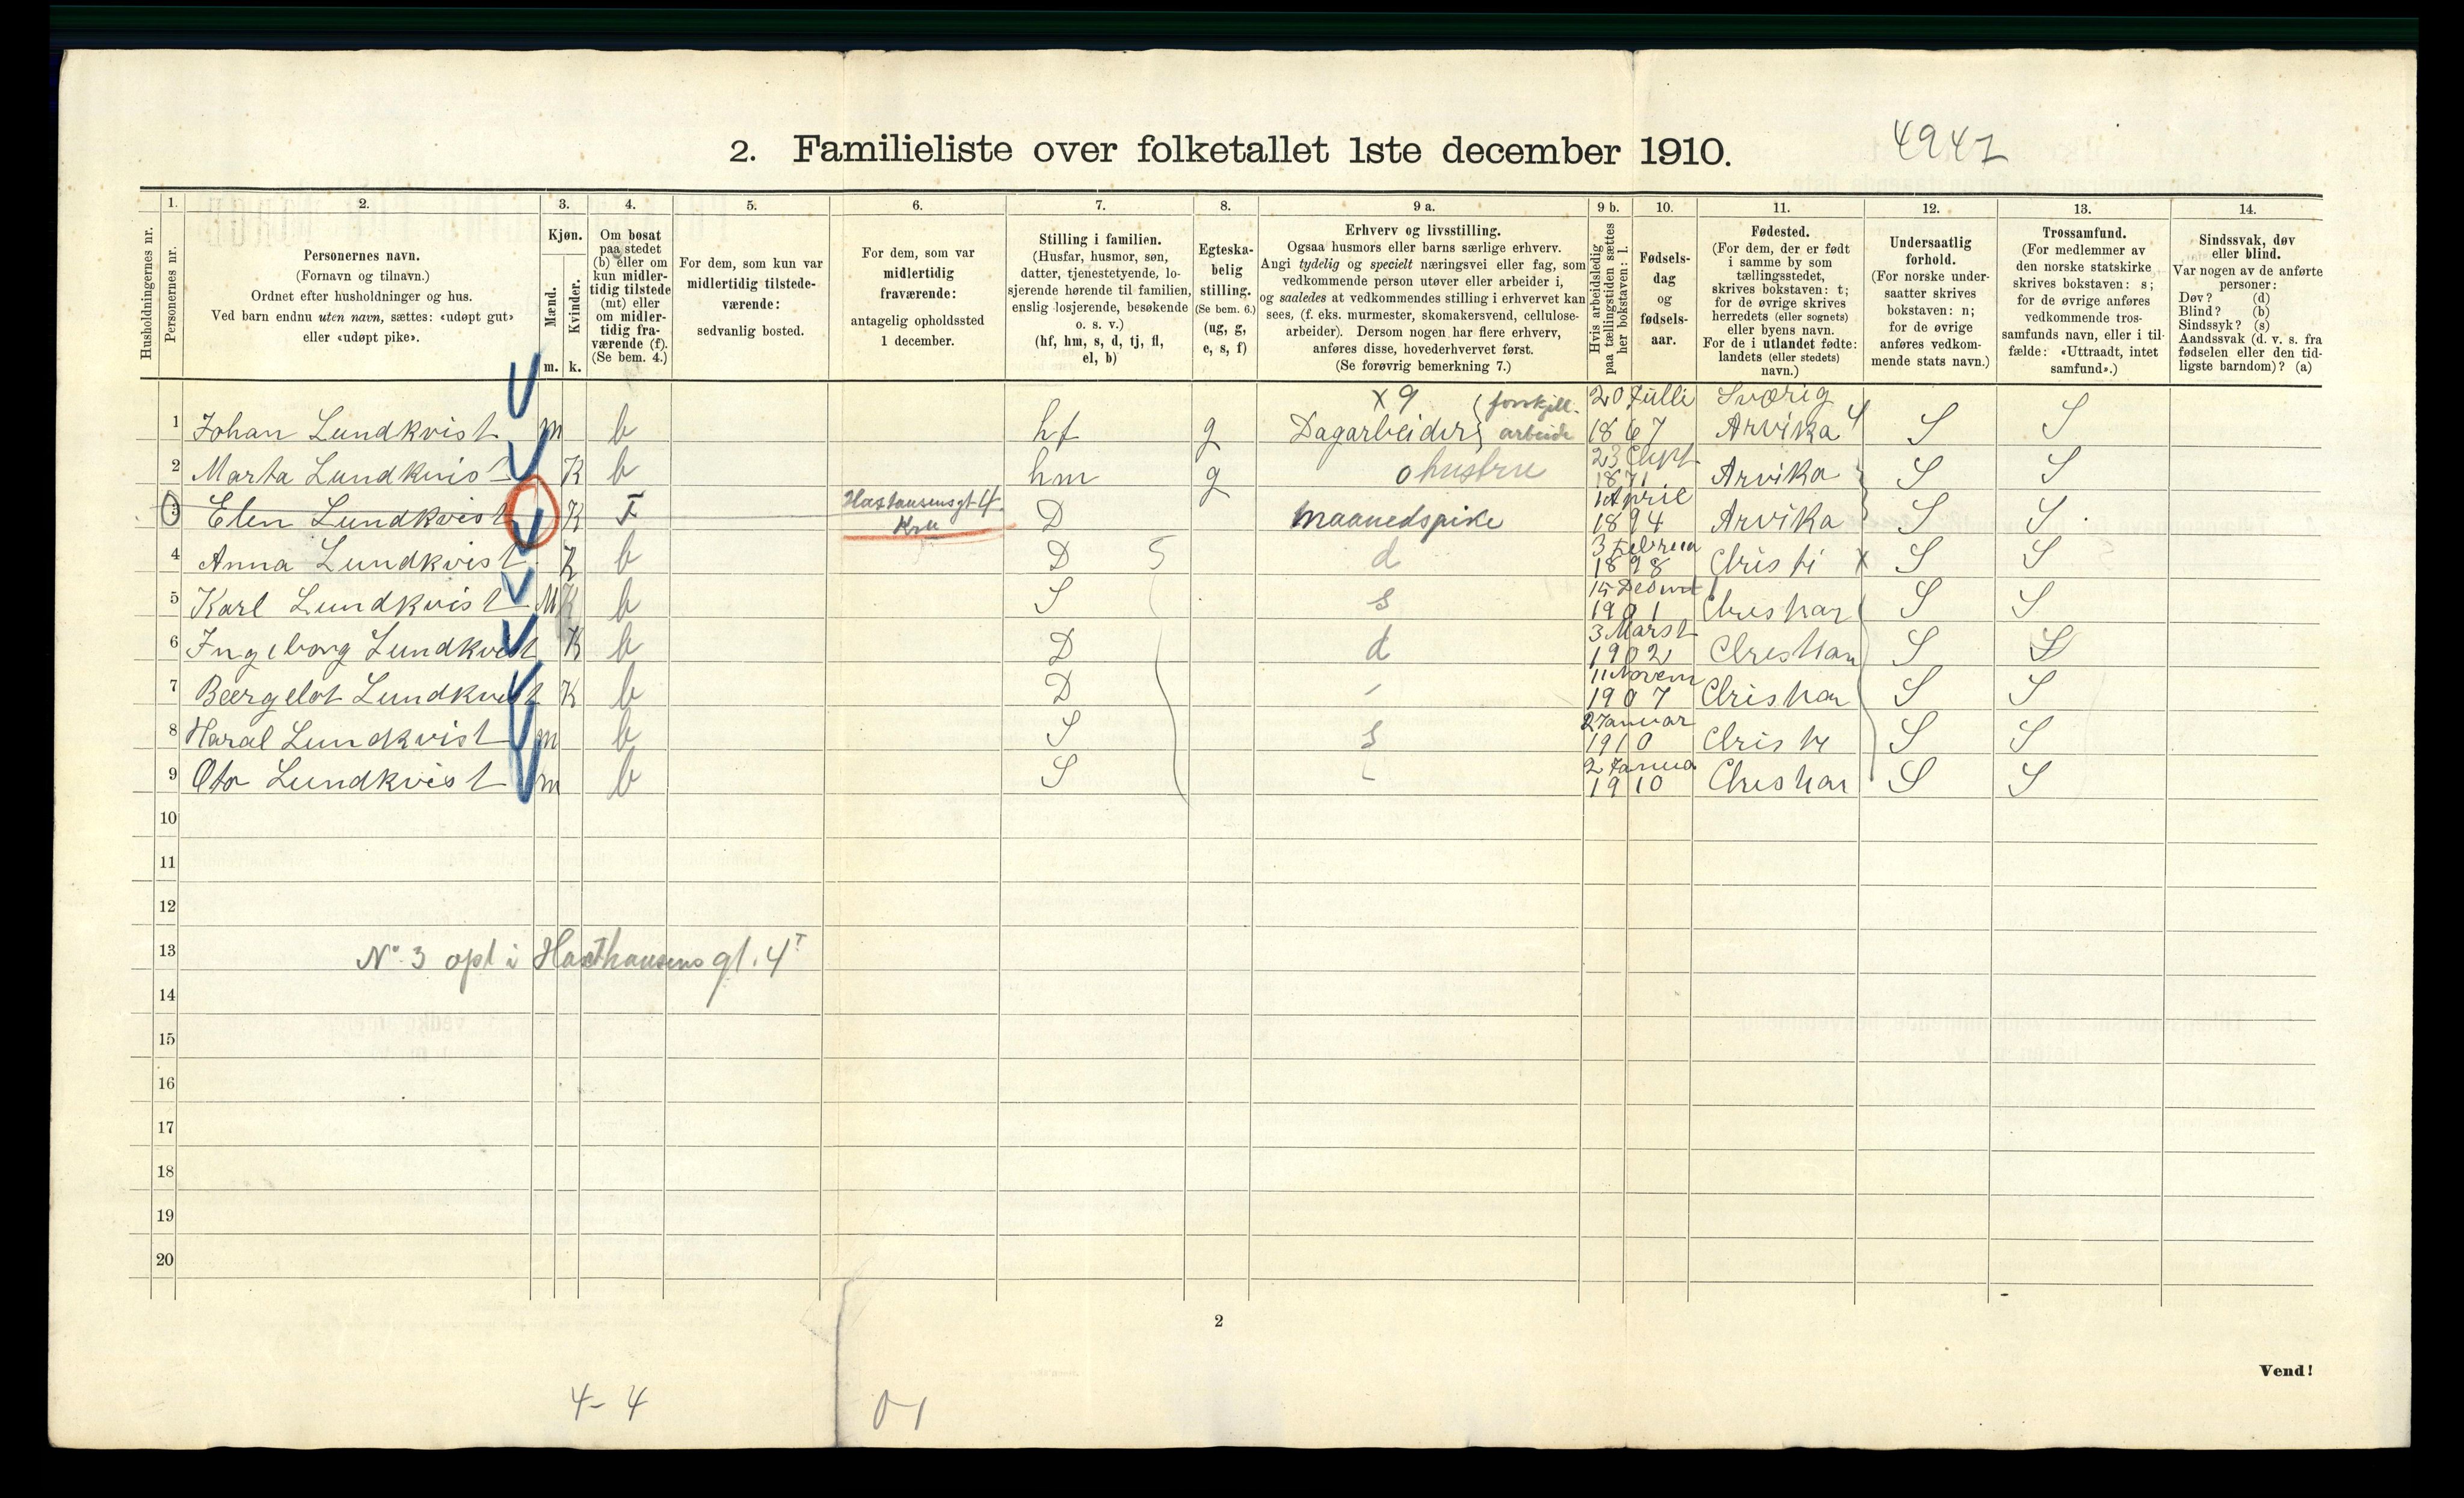 2. Familieliste over folketallet 1ste december 1910.
4947
Husholdningernes nr.
1. Personernes nr.
2. Personernes navn.
(Fornavn og tilnavn.)
Ordnet efter husholdninger og hus.
Ved barn endnu uten navn, sættes: «udøpt gut»
eller «udøpt pike».
3. Kjøn.
Mænd. Kvinder.
m. k.
4. Om bosat
paa stedet
(b) eller om
kun midler-
tidig tilstede
(mt) eller
om midler-
tidig fra-
værende (f).
(Se bem. 4.)
5. For dem, som kun var
midlertidig tilstede-
værende:
sedvanlig bosted.
6. For dem, som var
midlertidig
fraværende:
antagelig opholdssted
1 december.
7. Stilling i familien.
(Husfar, husmor, søn,
datter, tjenestetyende, lo-
sjerende hørende til familien,
enslig losjerende, besøkende
o. s. v.)
(hf, hm, s, d, tj, fl,
el, b)
8. Egteska-
belig
stilling.
(Se bem. 6.)
(ug, g,
e, s, f)
9 a. Erhverv og livsstilling.
Ogsaa husmors eller barns særlige erhverv.
Angi tydelig og specielt næringsvei eller fag, som
vedkommende person utøver eller arbeider i,
og saaledes at vedkommendes stilling i erhvervet kan
sees, (f. eks. murmester, skomakersvend, cellulose-
arbeider). Dersom nogen har flere erhverv,
anføres disse, hovederhvervet først.
(Se forøvrig bemerkning 7.)
9 b. Hvis arbeidsledig
paa tællingstiden sættes
her bokstaven: l.
10. Fødsels-
dag
og
fødsels-
aar.
11. Fødested.
(For dem, der er født
i samme by som
tællingsstedet,
skrives bokstaven: t;
for de øvrige skrives
herredets (eller sognets)
eller byens navn.
For de i utlandet fødte:
landets (eller stedets)
navn.)
12. Undersaatlig
forhold.
(For norske under-
saatter skrives
bokstaven: n;
for de øvrige
anføres vedkom-
mende stats navn.)
13. Trossamfund.
(For medlemmer av
den norske statskirke
skrives bokstaven: s;
for de øvrige anføres
vedkommende tros-
samfunds navn, eller i til-
fælde: «Uttraadt, intet
samfund».)
14. Sindssvak, døv
eller blind.
Var nogen av de anførte
personer:
Døv? (d)
Blind? (b)
Sindssyk? (s)
Aandssvak (d. v. s. fra
fødselen eller den tid-
ligste barndom)? (a)
x 9 forskjell. 20 Julli Sværig
1 Johan Lundkvist m b hf g Dagarbeider arbeide 1867 Arvika 4 S S
2 Marta Lundkvist K b hm g o hustru 23 Sept 1871 Arvika S S
3 Elen Lundkvist K F Haxtausensgt 4 Kra D maanedspike 1 April 1894 Arvika S S
4 Anna Lundkvist K b D 5 d 3 Februa 1898 Christi x S S
5 Karl Lundkvist M b S s 15 1901 Christian S S
6 Ingeborg Lundkvist K b D d 3 Marst 1902 Christian S S
7 Beergelot Lundkvist K b D - 11 Novem 1907 Christian S S
8 Haral Lundkvist m b S s 2 Januar 1910 Christi S S
9 Oto Lundkvist m b S - 2 Janua 1910 Christian S S
10
11
12
13 No 3 opt i Haxthausens gt. 4
14
15
16
17
18
19
20
2
Vend!
4-4